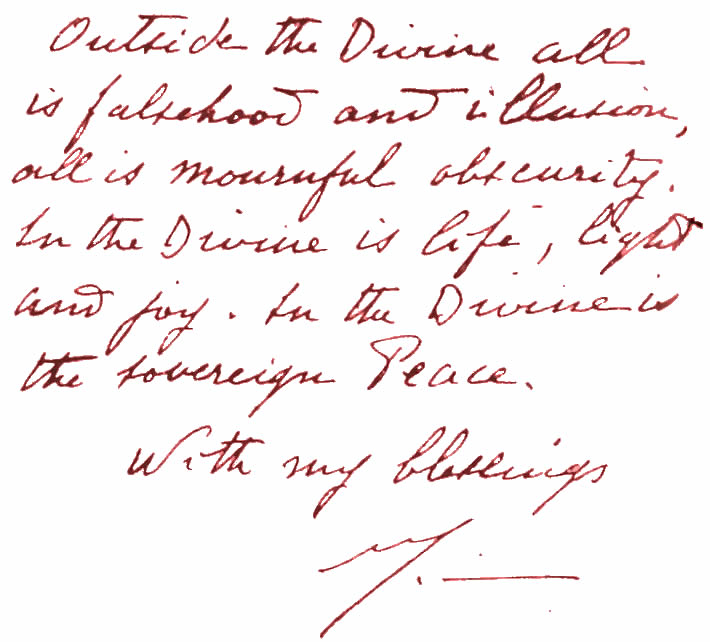 Outside the Divine all
is falsehood and illusion,
all is mournful obscurity.
In the Divine is life, light
and joy. In the Divine is
the sovereign Peace.
With my blessings